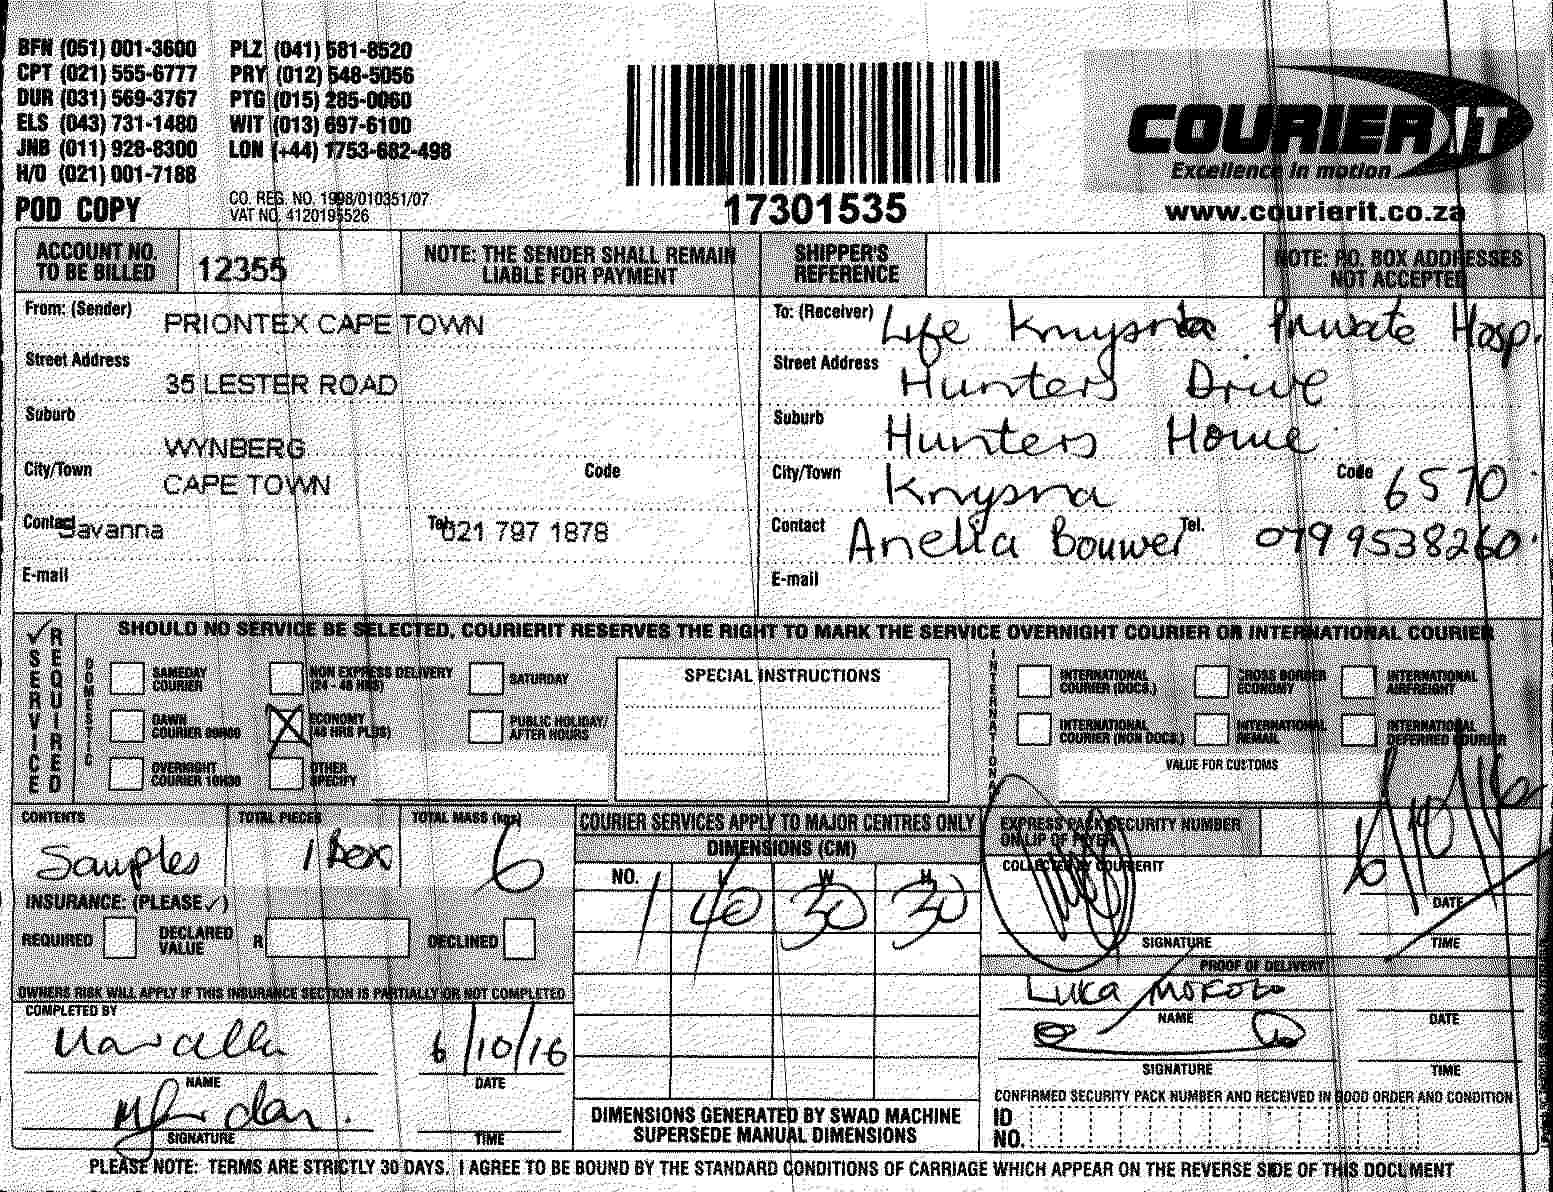 BFN (051) 001-3600 PLZ (041) 581-8520
CPT (021) 555-6777 PRY (012) 548-5056
DUR (031) 569-3767 PTG (015) 285-0060
ELS (043) 731-1480 WIT (013) 697-6100
JNB (011) 928-8300 LON (+44) 1753-682-498
H/O (021) 001-7188
POD COPY
CO. REG. NO. 1998/010351/07
VAT NO. 4120195526
17301535
COURIER IT
Excellence in motion
www.courierit.co.za
ACCOUNT NO. TO BE BILLED 12355
NOTE: THE SENDER SHALL REMAIN LIABLE FOR PAYMENT
SHIPPER'S REFERENCE
NOTE: P.O. BOX ADDRESSES NOT ACCEPTED
From: (Sender) PRIONTEX CAPE TOWN
Street Address 35 LESTER ROAD
Suburb WYNBERG
City/Town CAPE TOWN Code
Contact Savanna Tel. 021 797 1878
E-mail
To: (Receiver) Life Knysna Private Hosp.
Street Address Hunters Drive
Suburb Hunters Home
City/Town Knysna Code 6570
Contact Anelia Bouwer Tel. 079 9538260
E-mail
✓ SERVICE REQUIRED
SHOULD NO SERVICE BE SELECTED, COURIERIT RESERVES THE RIGHT TO MARK THE SERVICE OVERNIGHT COURIER OR INTERNATIONAL COURIER
DOMESTIC
SAMEDAY COURIER
NON EXPRESS DELIVERY (24 - 48 HRS)
SATURDAY
DAWN COURIER 09H00
X ECONOMY (48 HRS PLUS)
PUBLIC HOLIDAY/ AFTER HOURS
OVERNIGHT COURIER 10H30
OTHER SPECIFY
SPECIAL INSTRUCTIONS
INTERNATIONAL
INTERNATIONAL COURIER (DOCS.)
CROSS BORDER ECONOMY
INTERNATIONAL AIRFREIGHT
INTERNATIONAL COURIER (NON DOCS.)
INTERNATIONAL REMAIL
INTERNATIONAL DEFERRED COURIER
VALUE FOR CUSTOMS
CONTENTS Samples
TOTAL PIECES 1 Box
TOTAL MASS (kgs) 6
INSURANCE: (PLEASE ✓)
REQUIRED DECLARED VALUE R DECLINED
OWNERS RISK WILL APPLY IF THIS INSURANCE SECTION IS PARTIALLY OR NOT COMPLETED
COMPLETED BY
6/10/16
NAME DATE
SIGNATURE TIME
COURIER SERVICES APPLY TO MAJOR CENTRES ONLY
DIMENSIONS (CM)
NO. L W H
1 40 30 30
DIMENSIONS GENERATED BY SWAD MACHINE SUPERSEDE MANUAL DIMENSIONS
EXPRESS PACK SECURITY NUMBER ON LIP OF FLYER
COLLECTED BY COURIERIT
6/10/16
DATE
SIGNATURE TIME
PROOF OF DELIVERY
LUKA
NAME DATE
SIGNATURE TIME
CONFIRMED SECURITY PACK NUMBER AND RECEIVED IN GOOD ORDER AND CONDITION
ID NO.
PLEASE NOTE: TERMS ARE STRICTLY 30 DAYS. I AGREE TO BE BOUND BY THE STANDARD CONDITIONS OF CARRIAGE WHICH APPEAR ON THE REVERSE SIDE OF THIS DOCUMENT